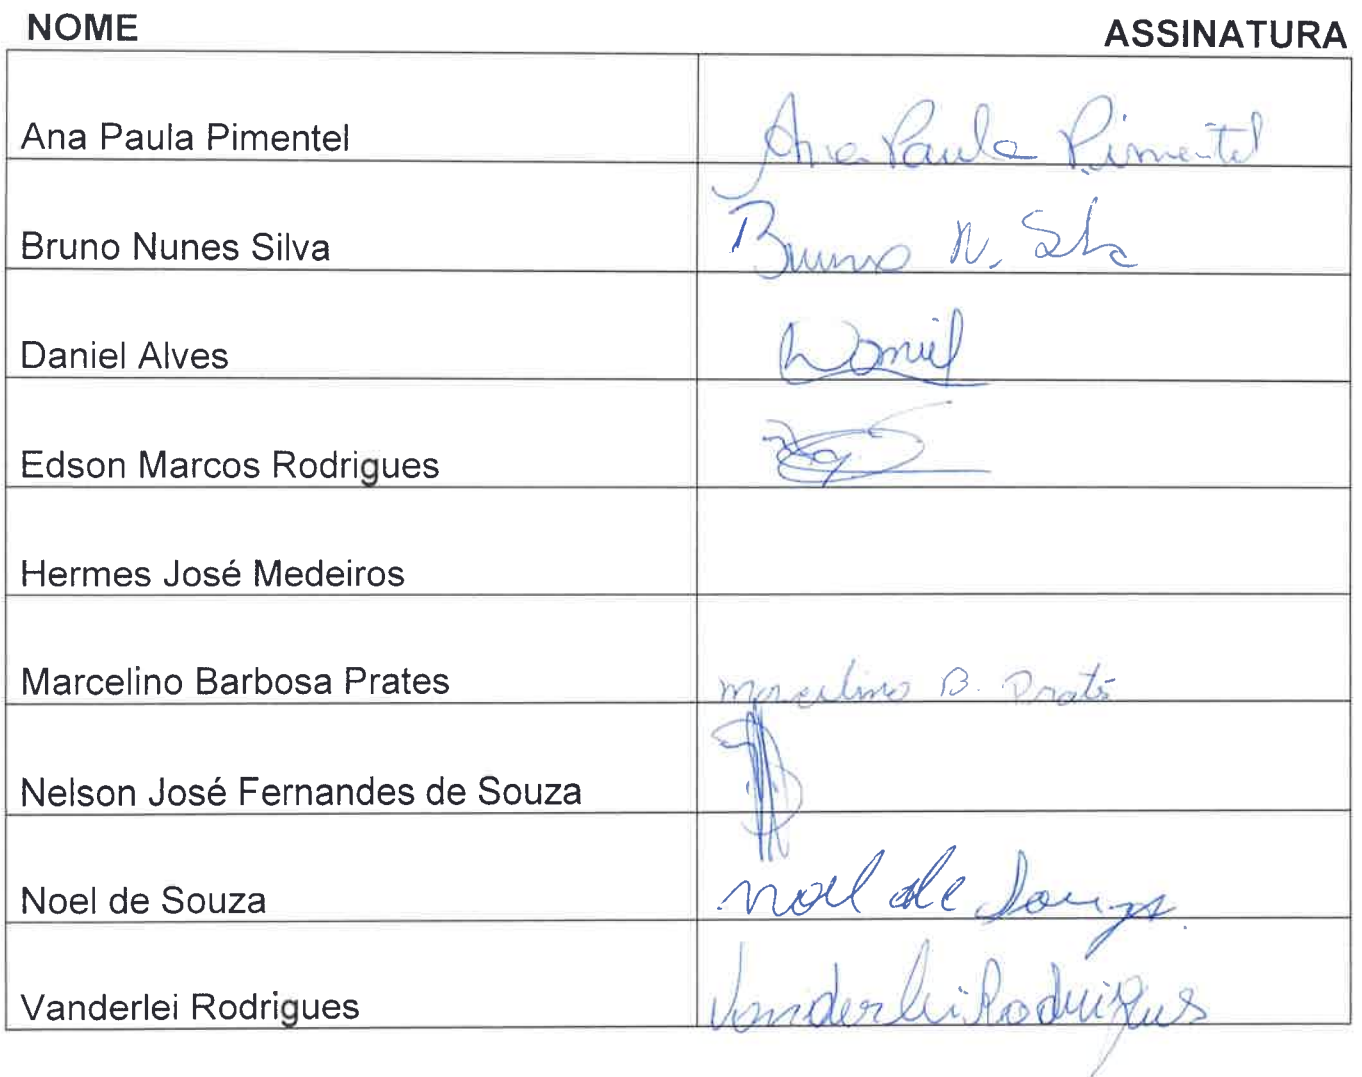 NOME ASSINATURA
Ana Paula Pimentel Ana Paula Pimentel
Bruno Nunes Silva Bruno N. Silva
Daniel Alves Daniel
Edson Marcos Rodrigues
Hermes José Medeiros
Marcelino Barbosa Prates Marcelino B. Prates
Nelson José Fernandes de Souza
Noel de Souza Noel de Souza
Vanderlei Rodrigues Vanderlei Rodrigues